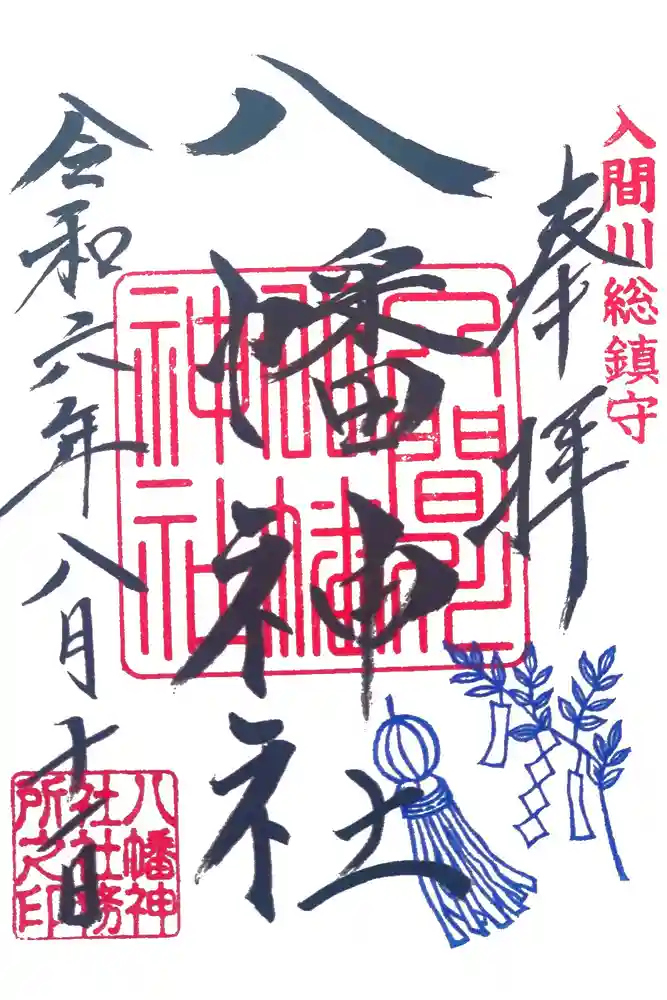 入間川総鎮守
奉拝
八幡神社
令和六年八月十日
八幡神
社社務
所之印